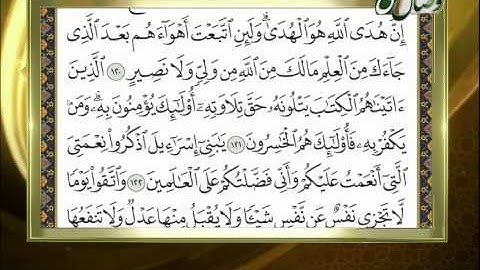 إِنَّ هُدَى اللَّهِ هُوَ الْهُدَىٰ ۗ وَلَئِنِ اتَّبَعْتَ أَهْوَاءَهُم بَعْدَ الَّذِي
جَاءَكَ مِنَ الْعِلْمِ مَا لَكَ مِنَ اللَّهِ مِن وَلِيٍّ وَلَا نَصِيرٍ ١٢٠ الَّذِينَ
ءَاتَيْنَاهُمُ الْكِتَابَ يَتْلُونَهُ حَقَّ تِلَاوَتِهِ أُولَٰئِكَ يُؤْمِنُونَ بِهِ ۗ وَمَن
يَكْفُرْ بِهِ فَأُولَٰئِكَ هُمُ الْخَاسِرُونَ ١٢١ يَا بَنِي إِسْرَائِيلَ اذْكُرُوا نِعْمَتِيَ
الَّتِي أَنْعَمْتُ عَلَيْكُمْ وَأَنِّي فَضَّلْتُكُمْ عَلَى الْعَالَمِينَ ١٢٢ وَاتَّقُوا يَوْمًا
لَّا تَجْزِي نَفْسٌ عَن نَّفْسٍ شَيْئًا وَلَا يُقْبَلُ مِنْهَا عَدْلٌ وَلَا تَنفَعُهَا